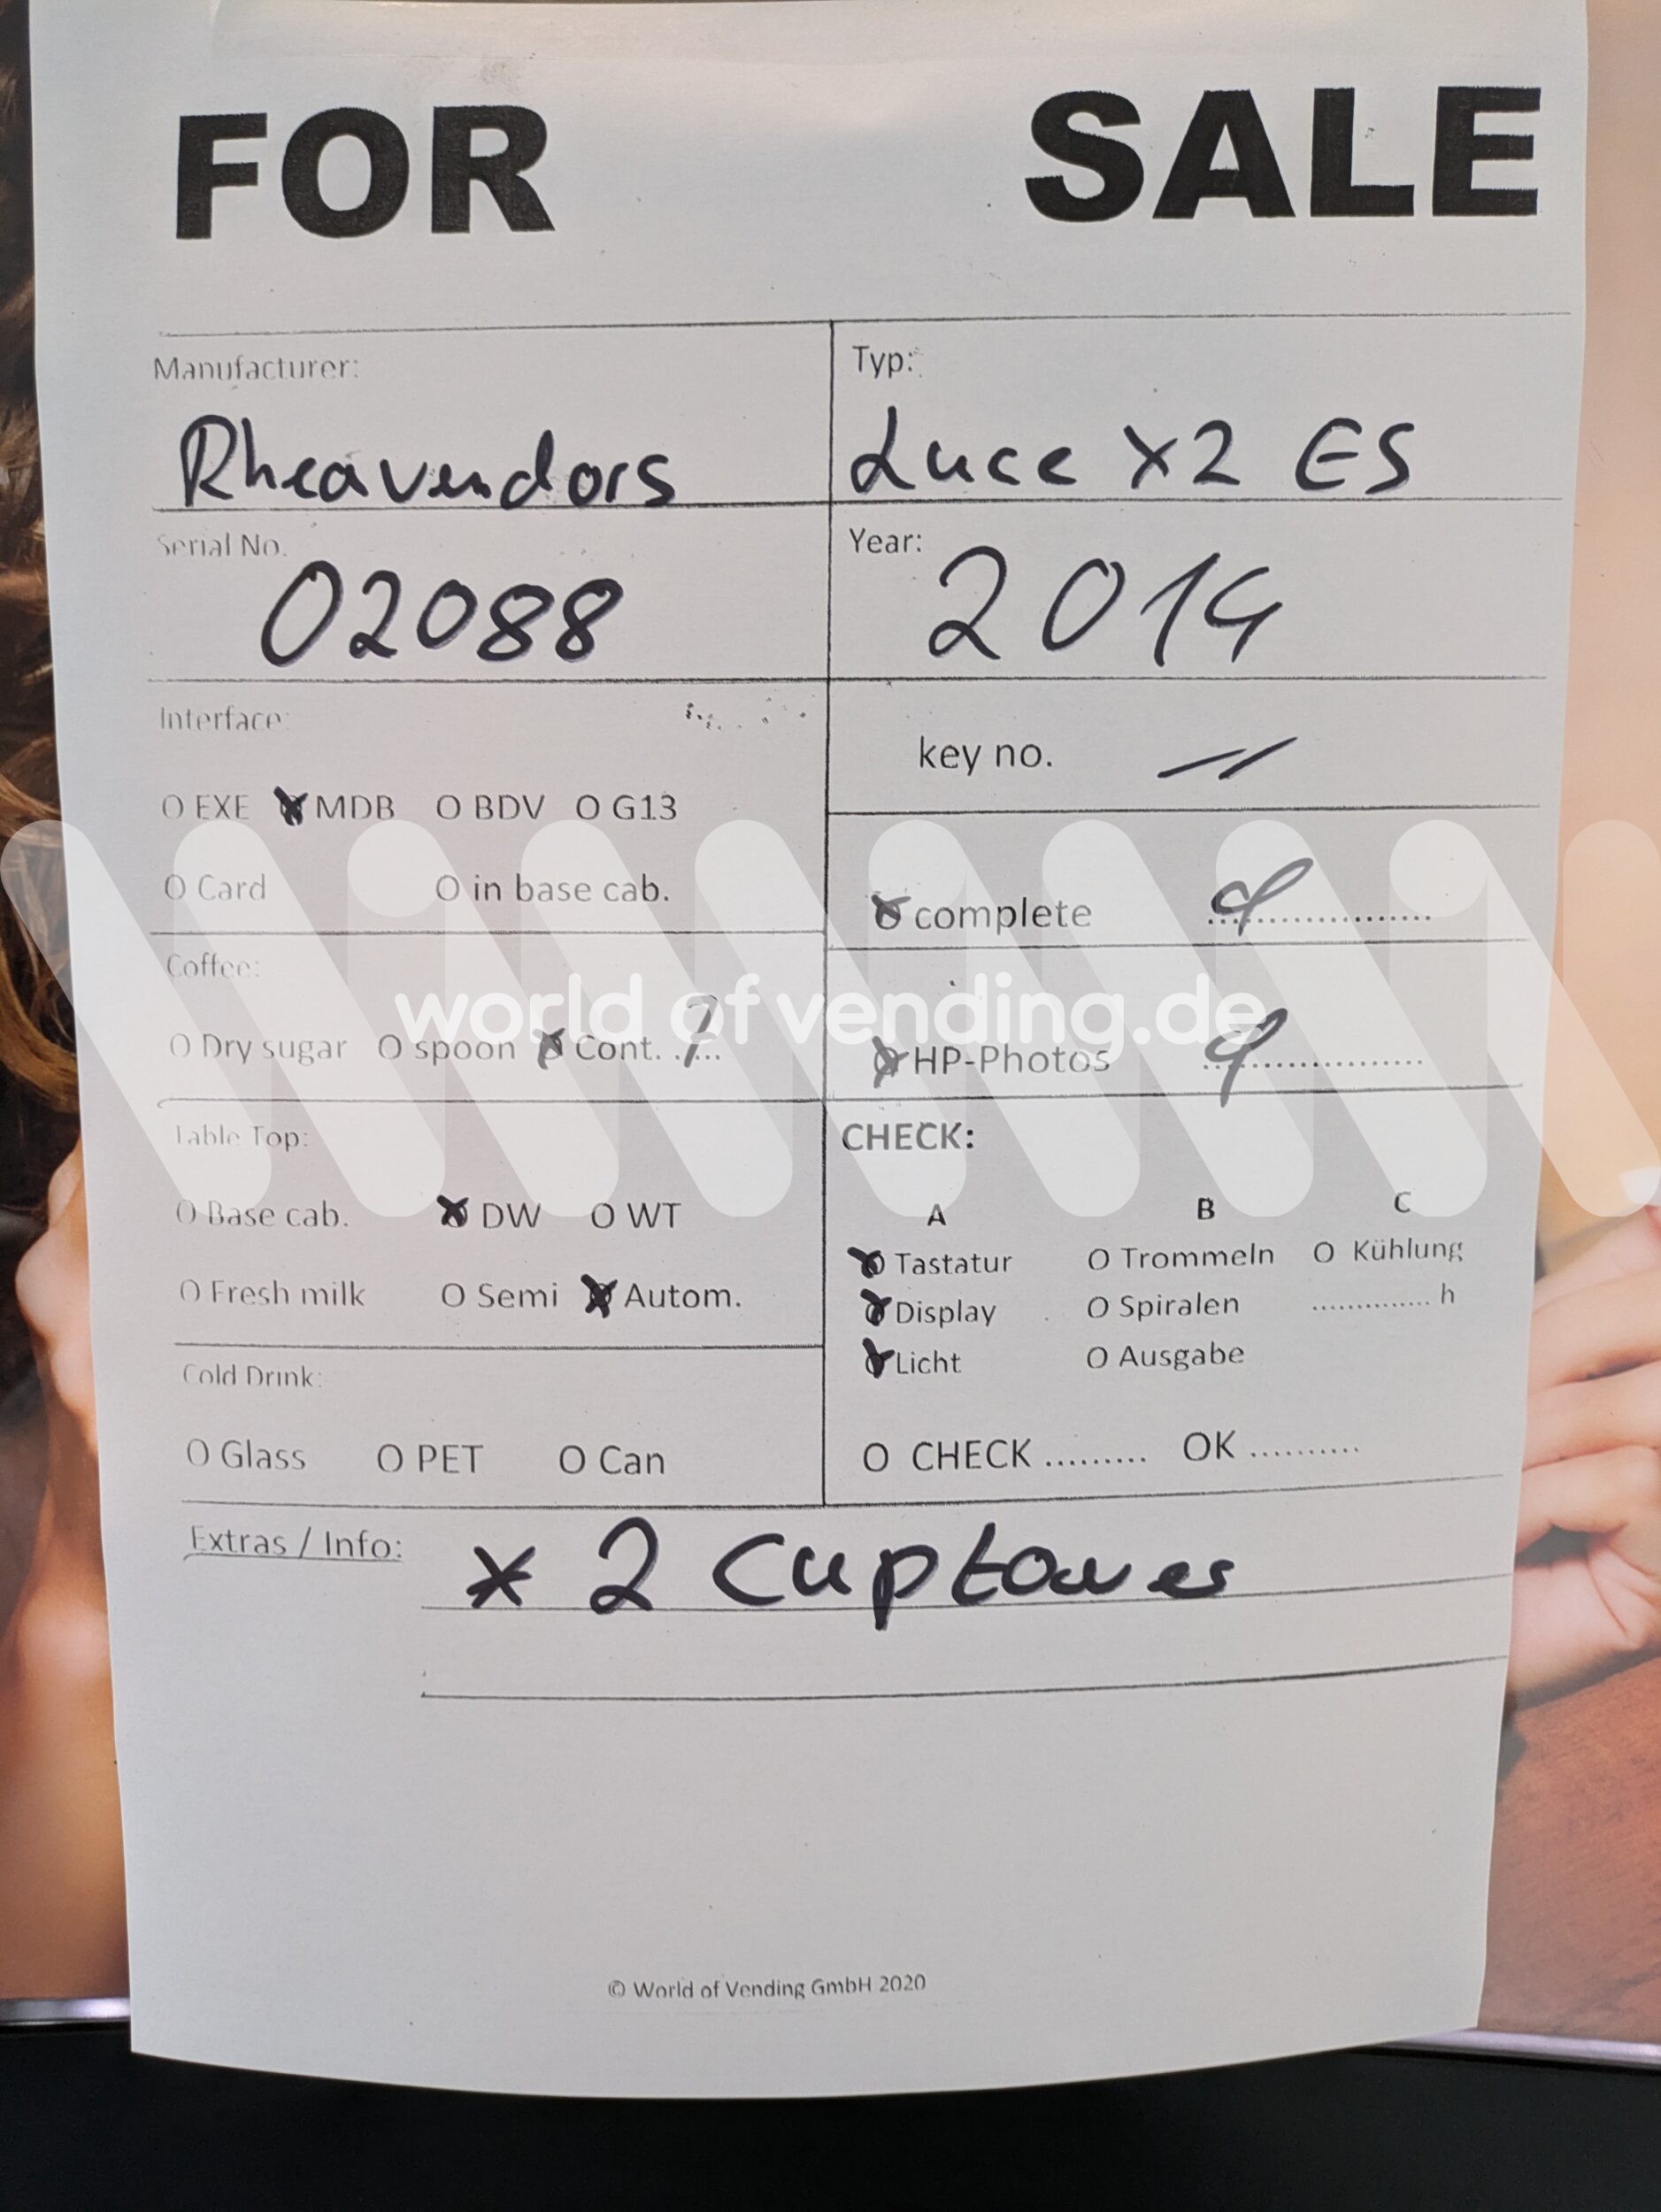 FOR SALE
Manufacturer: Typ:
Rheavendors Luce X2 ES
Serial No. Year:
02088 2014
Interface:
key no. —//
O EXE X MDB O BDV O G13
O Card O in base cab.
X complete ....................
Coffee:
world of vending.de
O Dry sugar O spoon X Cont. .7...
X HP-Photos ....................
Table Top: CHECK:
A B C
O Base cab. X DW O WT
X Tastatur O Trommeln O Kühlung
O Fresh milk O Semi X Autom.
X Display O Spiralen .............. h
X Licht O Ausgabe
Cold Drink:
O Glass O PET O Can
O CHECK ......... OK ..........
Extras / Info: * 2 Cuptower
© World of Vending GmbH 2020